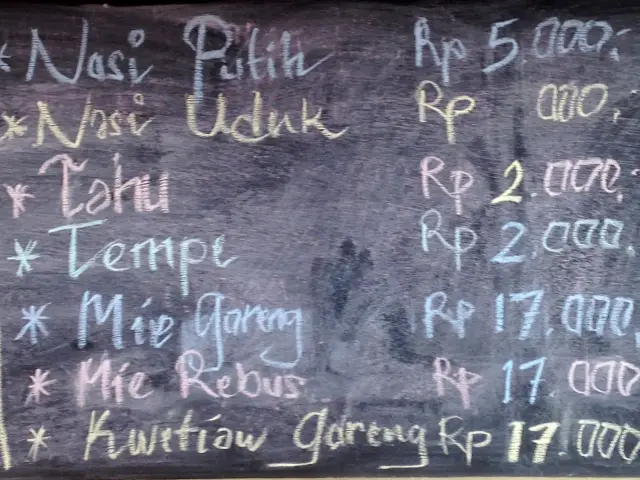 * Nasi Putih Rp 5.000,-
* Nasi Uduk Rp 000,-
* Tahu Rp 2.000,-
* Tempe Rp 2.000,
* Mie Goreng Rp 17.000,
* Mie Rebus Rp 17.000
* Kwetiaw goreng Rp 17.000